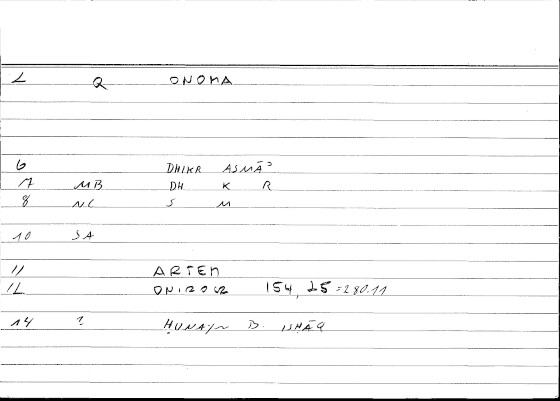 2 Q ONOMA
6 DHIKR ASMĀʾ
7 MB DH K R
8 NC S M
10 SA
11 ARTEM
12 ONIROCR 154, 25 = 280.11
14 ? ḤUNAYN B. ISḤĀQ